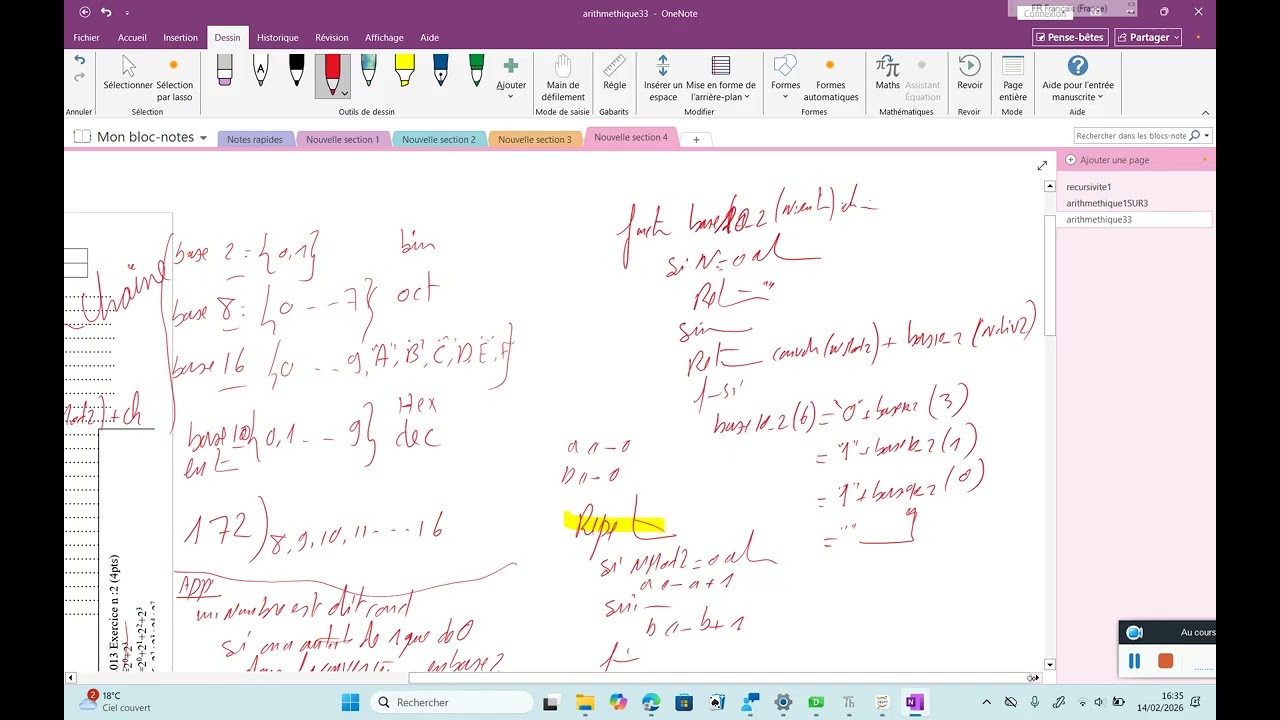 arithmethique33 - OneNote
FR Français (France)
Connexion
Fichier
Accueil
Insertion
Dessin
Historique
Révision
Affichage
Aide
Pense-bêtes
Partager
Annuler
Sélectionner
Sélection par lasso
Sélection
Ajouter
Outils de dessin
Main de défilement
Mode de saisie
Règle
Gabarits
Insérer un espace
Mise en forme de l'arrière-plan
Modifier
Formes
Formes automatiques
Formes
Maths
Assistant Équation
Mathématiques
Revoir
Revoir
Page entière
Mode
Aide pour l'entrée manuscrite
Aide
Mon bloc-notes
Notes rapides
Nouvelle section 1
Nouvelle section 2
Nouvelle section 3
Nouvelle section 4
+
Rechercher dans les blocs-note
Ajouter une page
recursivite1
arithmethique1SUR3
arithmethique33
chaîne
base 2 = {0,1} bin
base 8 = {0 -- 7} oct
base 16 {0 -- 9, "A", "B", "C", D, E, F}
Hex
base 10 {0,1 -- 9} dec
172) 8, 9, 10, 11 ---- 16
App
un Nombre est dit rond
si on a de 1 que de 0
en base 2
+ ch
013 Exercice n :2 (4pts)
base10_2 (N:ent) ch
si N=0 al
Ret ""
sin
Ret convch(N mod 2) + base10_2 (N div 2)
f-si
base10_2(6) = "0" + base10_2 (3)
= "1" + base10_2 (1)
= "1" + base10_2 (0)
= ""
a <- 0
b <- 0
Repet
si N mod 2 = 0 al
a <- a+1
sin
b <- b+1
Au cours
2
18°C
Ciel couvert
Rechercher
16:35
14/02/2026